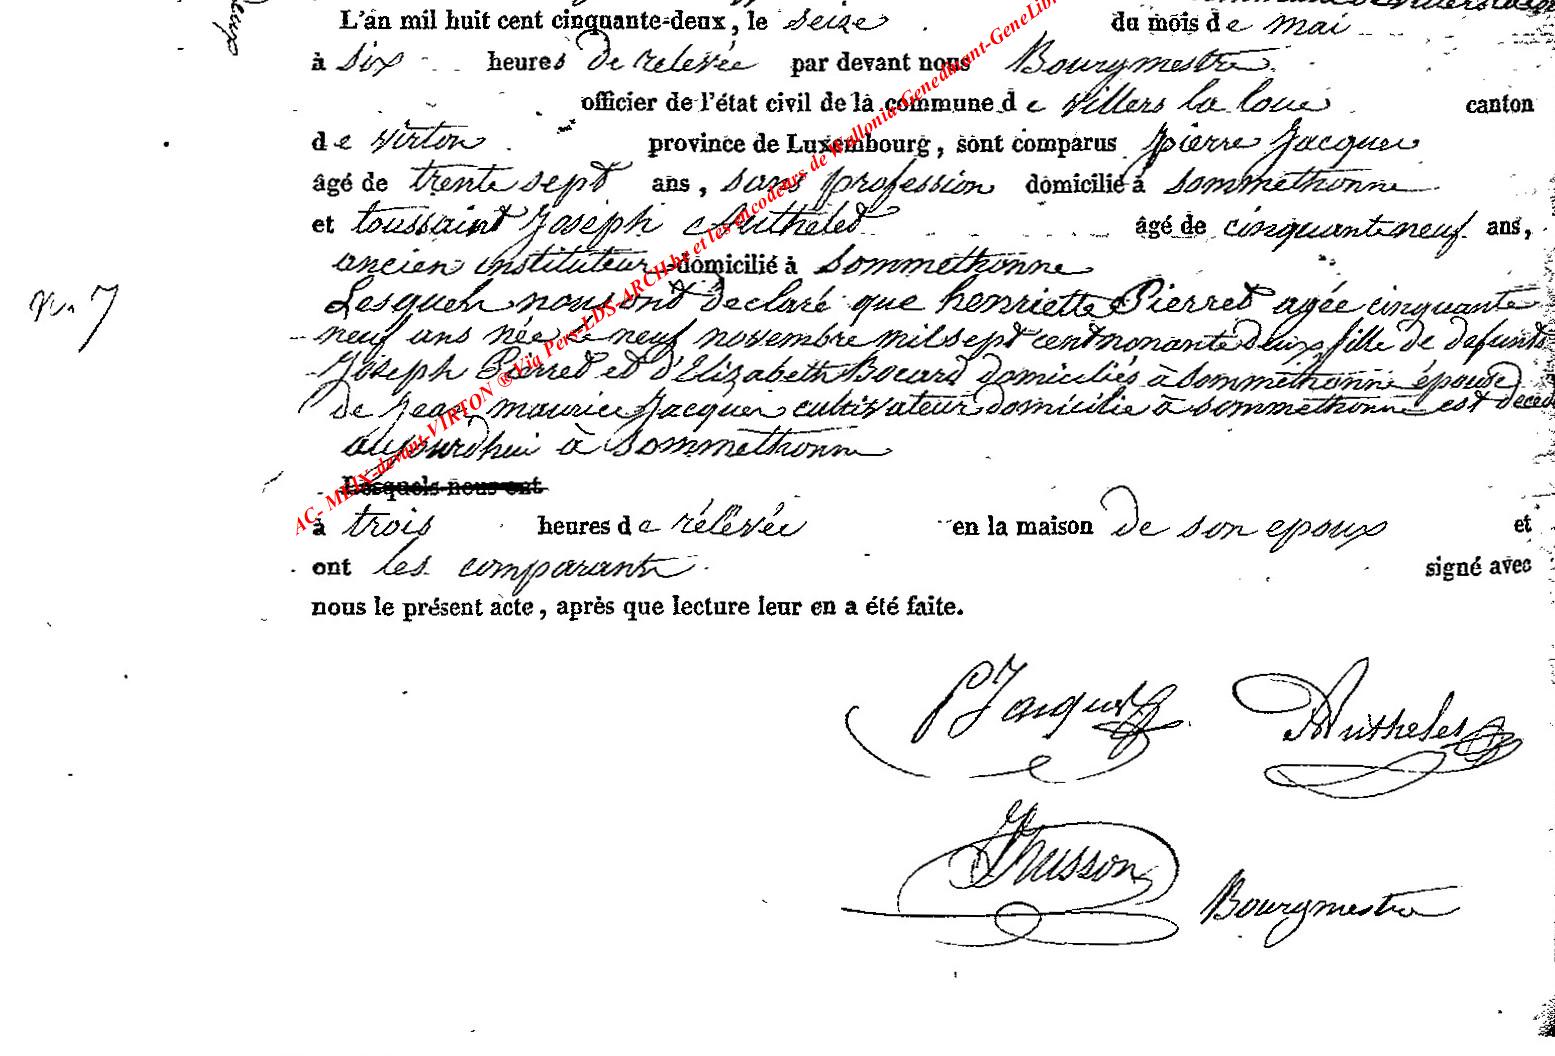 L'an mil huit cent cinquante-deux, le seize du mois de mai
à six heures de relevée par devant nous Bourgmestre
officier de l'état civil de la commune de villers la loue canton
de virton province de Luxembourg, sont comparus pierre Jacques
âgé de trente sept ans, sans profession domicilié à sommethonne
et toussaint Joseph Authelet âgé de cinquante neuf ans,
ancien instituteur domicilié à sommethonne
Lesquels nous ont declaré que henriette Pierret agée cinquante
neuf ans née le neuf novembre mil sept cent nonante deux fille de defunts
Joseph Pierret et d'Elizabeth Bocard domiciliés à sommethonne épouse
de Jean maurice Jacques cultivateur domicilié à sommethonne est
aujourd'hui à sommethonne
Lesquels nous ont
à trois heures de rélévée en la maison de son epoux et
ont les comparants signé avec
nous le présent acte, après que lecture leur en a été faite.
N° 7
P Jacques Authelet
Husson Bourgmestre
AC- MEIX-devant-VIRTON ® Via Pers-LDS-ARCH.be et les encodeurs de Wallonia-Genedinant-GeneLib